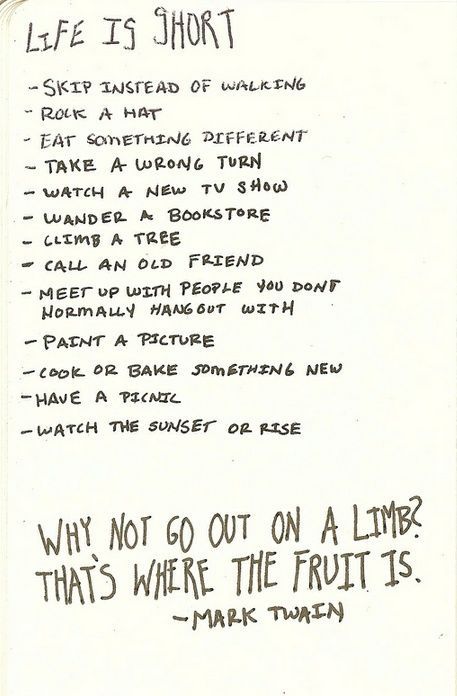 LIFE IS SHORT
- SKIP INSTEAD OF WALKING
- ROCK A HAT
- EAT SOMETHING DIFFERENT
- TAKE A WRONG TURN
- WATCH A NEW TV SHOW
- WANDER A BOOKSTORE
- CLIMB A TREE
- CALL AN OLD FRIEND
- MEET UP WITH PEOPLE YOU DONT
NORMALLY HANG OUT WITH
- PAINT A PICTURE
- COOK OR BAKE SOMETHING NEW
- HAVE A PICNIC
- WATCH THE SUNSET OR RISE
WHY NOT GO OUT ON A LIMB?
THAT'S WHERE THE FRUIT IS.
- MARK TWAIN